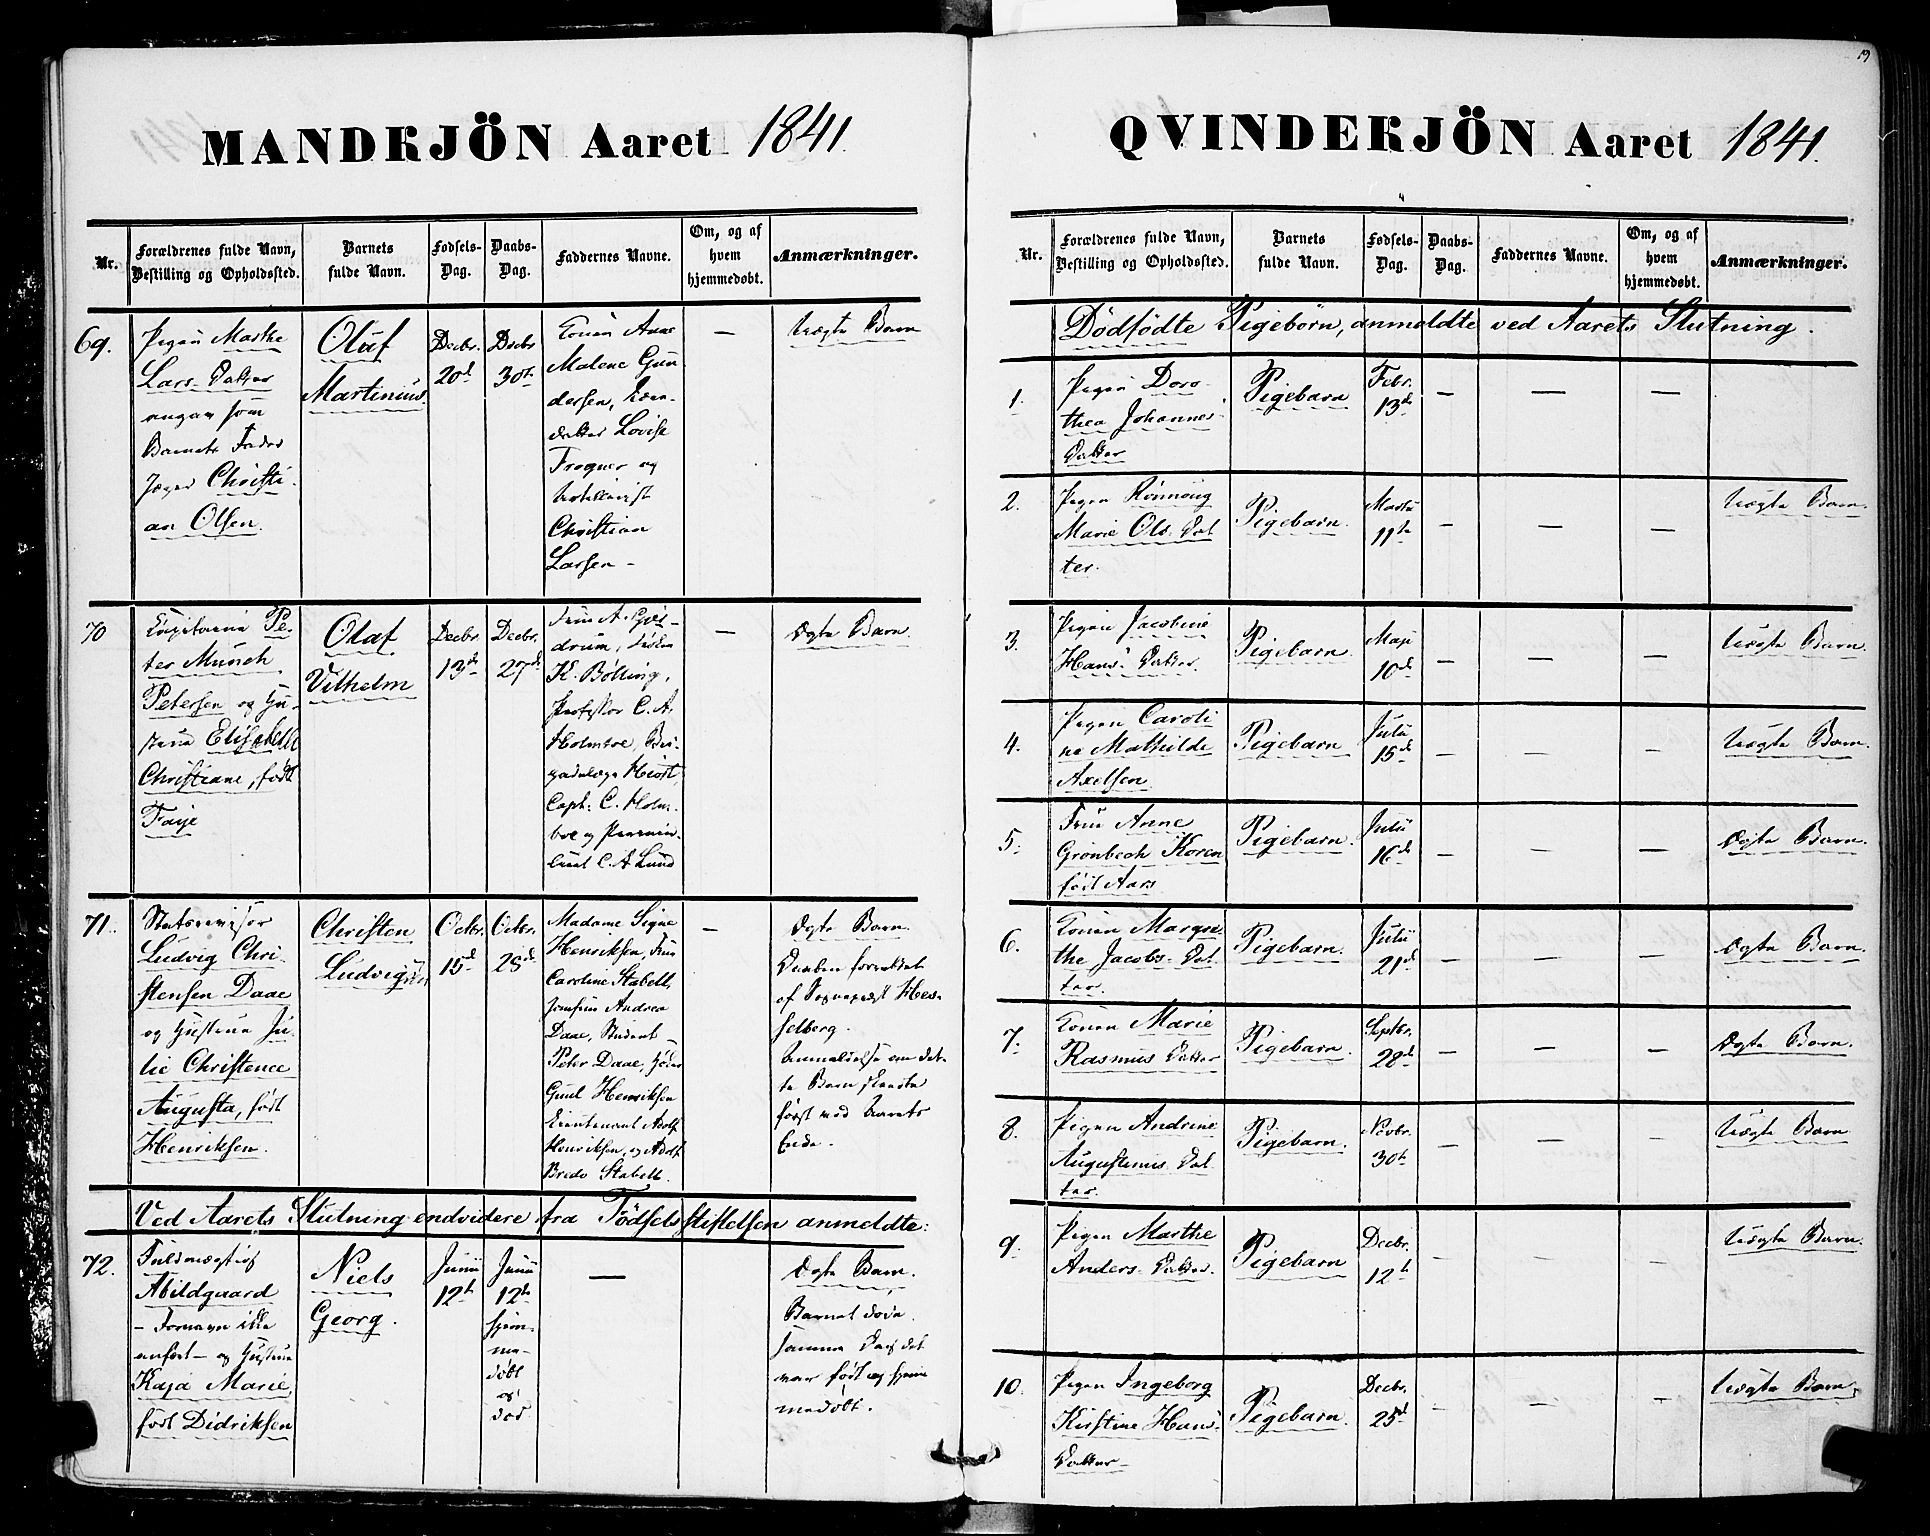 19
MANDKJÖN Aaret 1841.
Nr.
Forældrenes fulde Navn,
Bestilling og Opholdssted.
Barnets
fulde Navn.
Fødsels-
Dag.
Daabs-
Dag.
Faddernes Navne.
Om, og af
hvem
hjemmedøbt.
Anmærkninger.
69.
Pigen Marthe
Lars-Datter
angav som
Barnets Fader
Jæger Christi-
an Olsen.
Oluf
Martinius
Decbr.
20d
Decbr
30te
Konen Anne
Malene Gun-
dersen,
Lovise
Frogner og
Christian
Larsen -
—
Uægte Barn
70
Capitaine Pe-
ter Munch
Petersen og Hu-
struе Elisabeth
Christiane, født
Faye
Olaf
Vilhelm
Decbr.
13d
Decbr.
27d
Frue A. Gjer-
drum,
K. Bölling,
Professor C. A.
Holmboe, Bri-
gadelæge Heiöst
Capt: C. Holm-
boe og Premier-
lieut C. A. Lund
—
Ægte Barn.
71.
Statsrevisor
Ludvig Chri-
stensen Daae
og Hustrue Ju-
lie Christence
Augusta, født
Henriksen.
Christen
Ludvigsen
Octbr.
15d
Octbr.
28d
Madame Signe
Henriksen, Frue
Caroline Stabell,
Jomfrue Andrea
Daae, Student
Peter Daae,
Henriksen
Lieutenant Adolf
Henriksen, og Adolf
Bredo Stabell.
—
Ægte Barn.
Daaben forrettet
af Sognepræst Hes-
selberg.
Anmeldelse om det-
te Barn skeedte
først ved Aarets
Ende.
Ved Aarets Slutning endvidere fra Fødselsstiftelsen anmeldte:
72.
Fuldmægtig
Abildgaard
- Fornavn ikke
anført - og Hustrue
Kaja Marie,
født Didriksen
Niels
Georg.
Junii
12te
Junii
12te
hjem-
me-
døbt
og
død
—
Ægte Barn.
Barnet døde
samme Dag det
var født og hjem
medøbt.
QVINDEKJÖN Aaret 1841.
Nr.
Forældrenes fulde Navn,
Bestilling og Opholdssted.
Barnets
fulde Navn.
Fødsels-
Dag.
Daabs-
Dag.
Faddernes Navne.
Om, og af
hvem
hjemmedøbt.
Anmærkninger.
Dödfödte Pigebörn, anmeldte ved Aarets Slutning.
1.
Pigen Doro-
thea Johannes-
Datter
Pigebarn
Febr.
13de
—
—
—
2.
Pigen Rönnaug
Marie Ols-Dat
ter.
Pigebarn.
Marts
11te
—
—
—
Uægte Barn.
3.
Pigen Jacobine
Hans-Datter.
Pigebarn.
Maji
10de
—
—
—
Uægte Barn.
4.
Pigen Caroli
ne Mathilde
Axelsen
Pigebarn
Julii
15de
—
—
—
Uægte Barn.
5.
Frue Anne
Grønbech Koren
født Aars
Pigebarn.
Julii
16de
—
—
—
Ægte Barn.
6.
Konen Margre
the Jacobs-Dat
ter.
Pigebarn.
Julii
21de
—
—
—
Ægte Barn
7.
Konen Marie
Rasmus Datter
Pigebarn.
Septbr.
28de
—
—
—
Ægte Barn.
8.
Pigen Andrine
Augustinus Dat
ter.
Pigebarn.
Novbr.
30te
—
—
—
Uægte Barn
9.
Pigen Marthe
Anders-Datter.
Pigebarn
Decbr.
12te
—
—
—
Uægte Barn.
10.
Pigen Ingeborg
Kirstine Hans-
Datter
Pigebarn.
Decbr.
25de
—
—
—
Uægte Barn